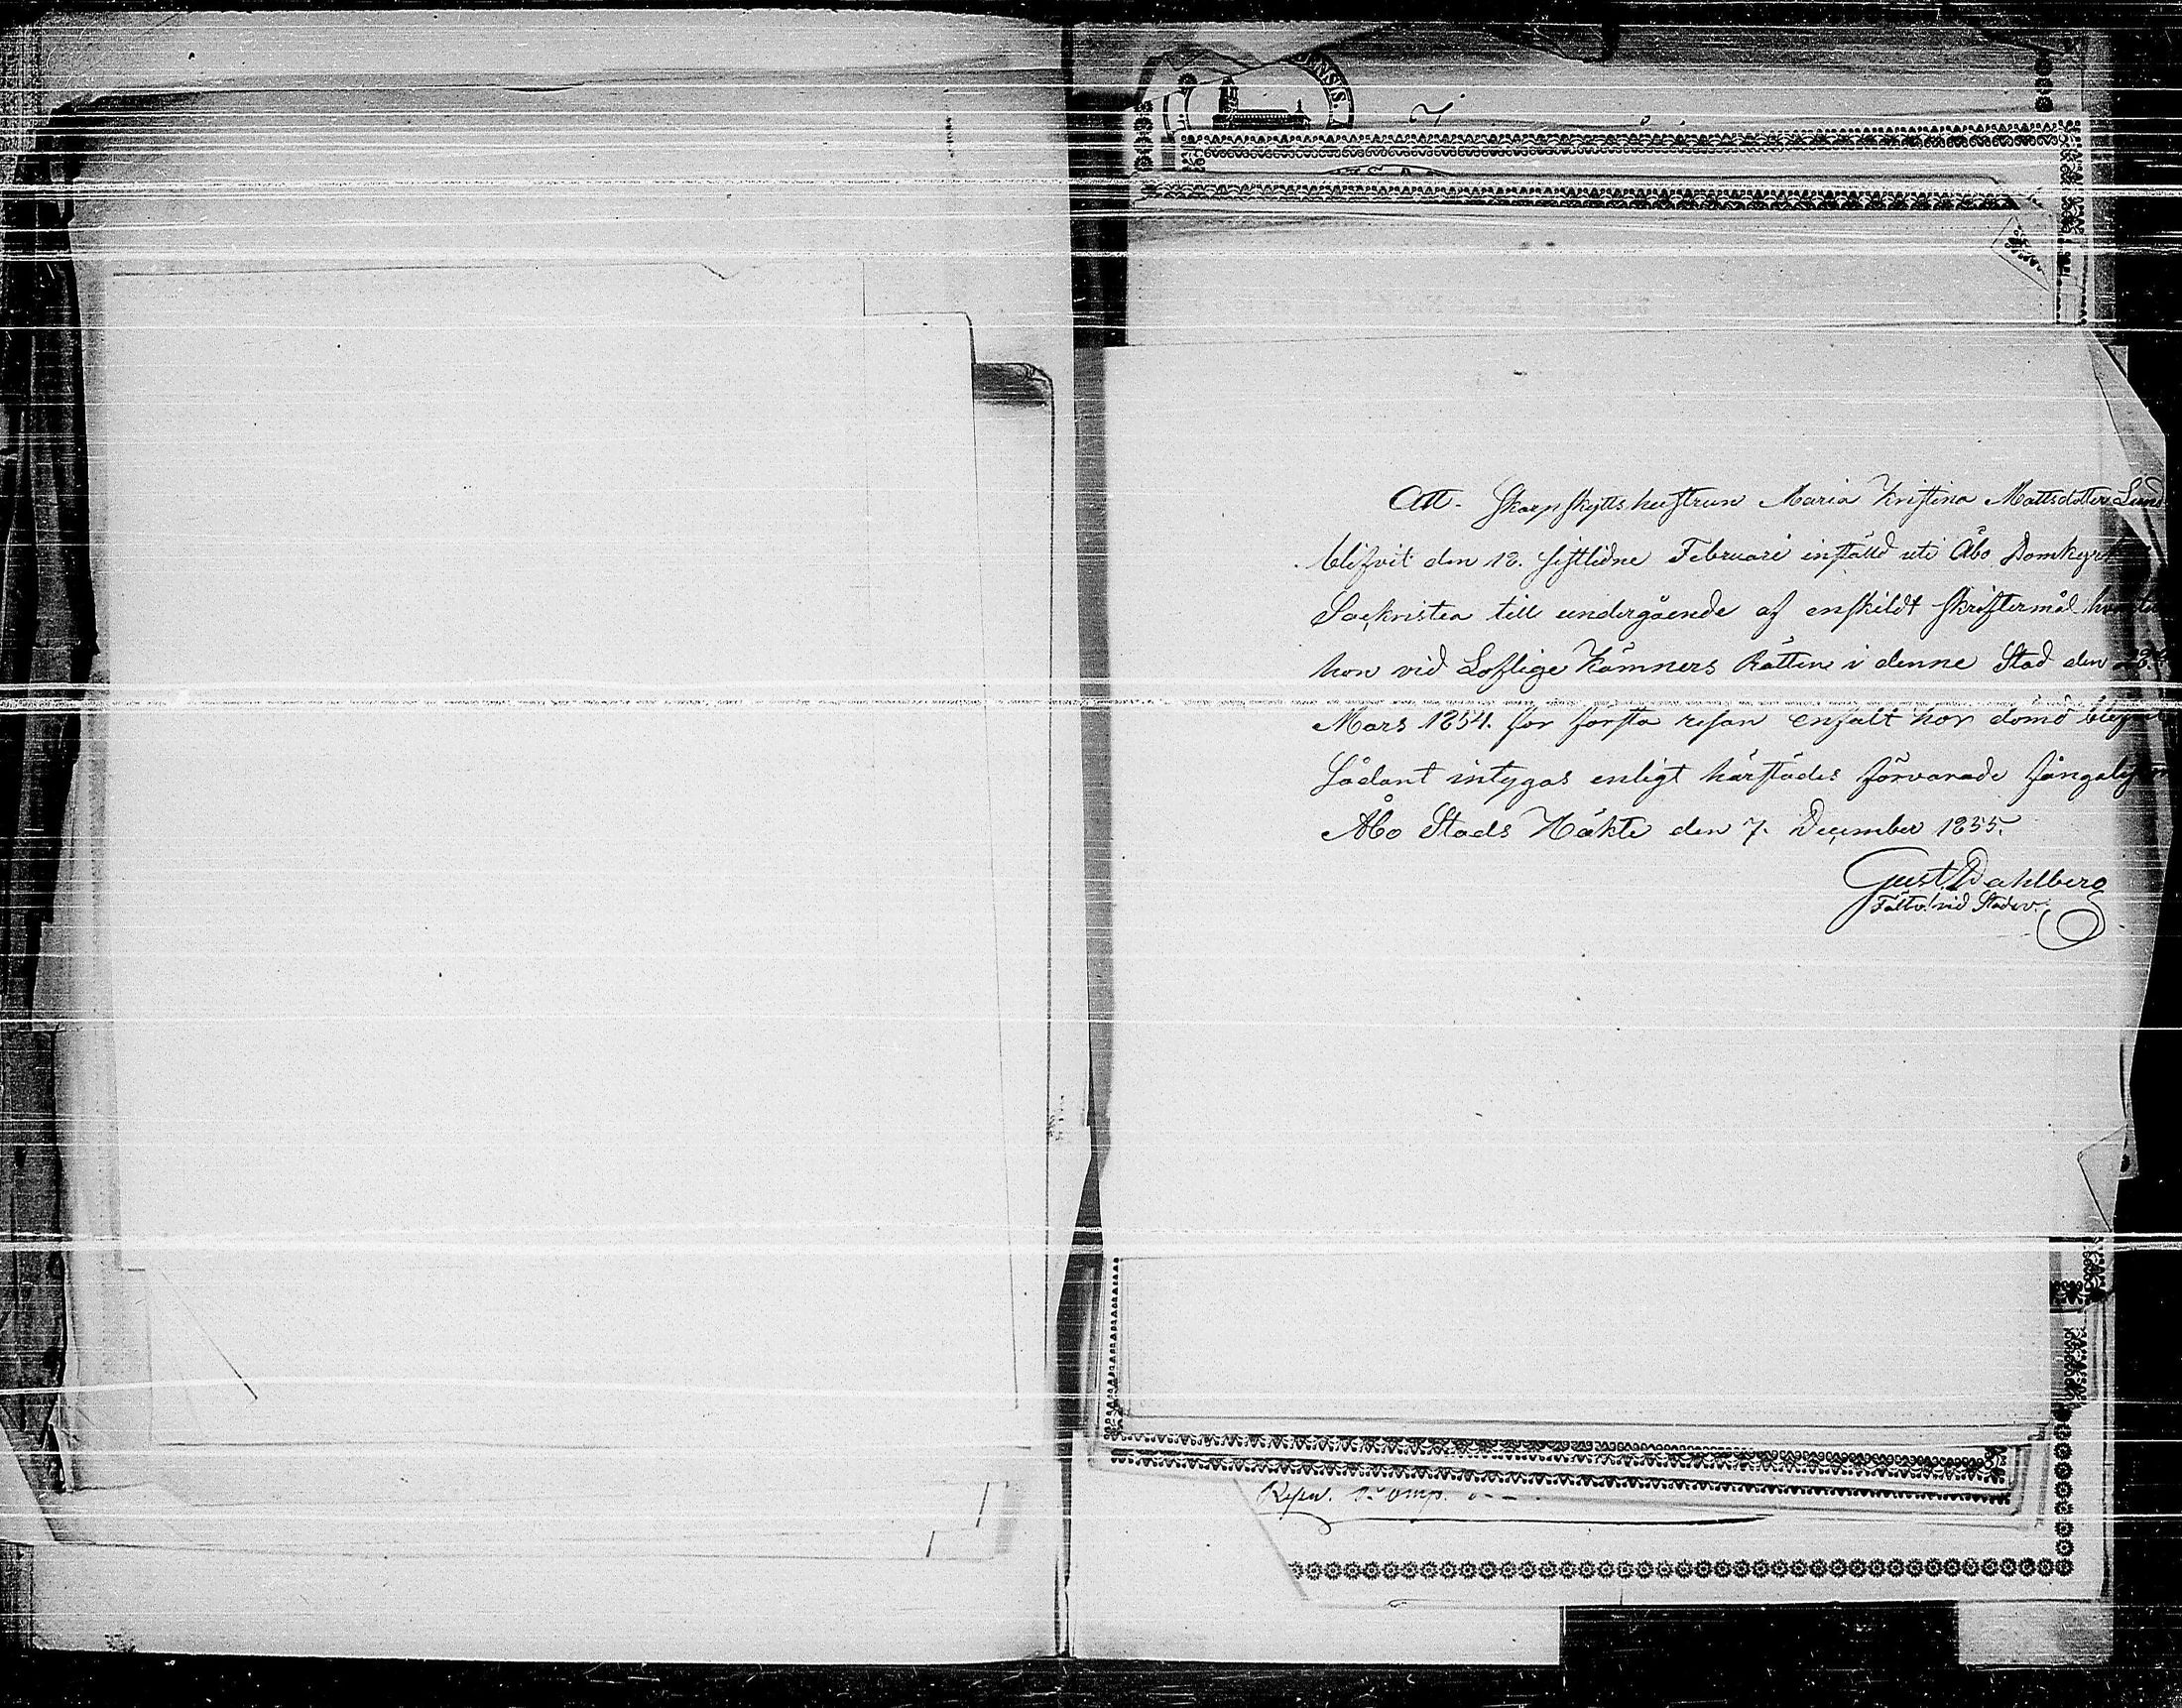 Att Skarpskyttshustrun Maria Kristina Mattsdotter Lund
blifvit den 12. sistlidne Februari inställd uti Åbo Domkyrk
Sackristea till undergående af enskildt skriftermål
hon vid Loflige Kämners Rätten i denne Stad den 28
Mars 1854. för första resan enfalt hor dömd
Sådant intygas enligt härstädes förvarade fångalistan
Åbo Stads Häkte den 7. December 1855.
Gust. Dahlberg
vid Stadsv.